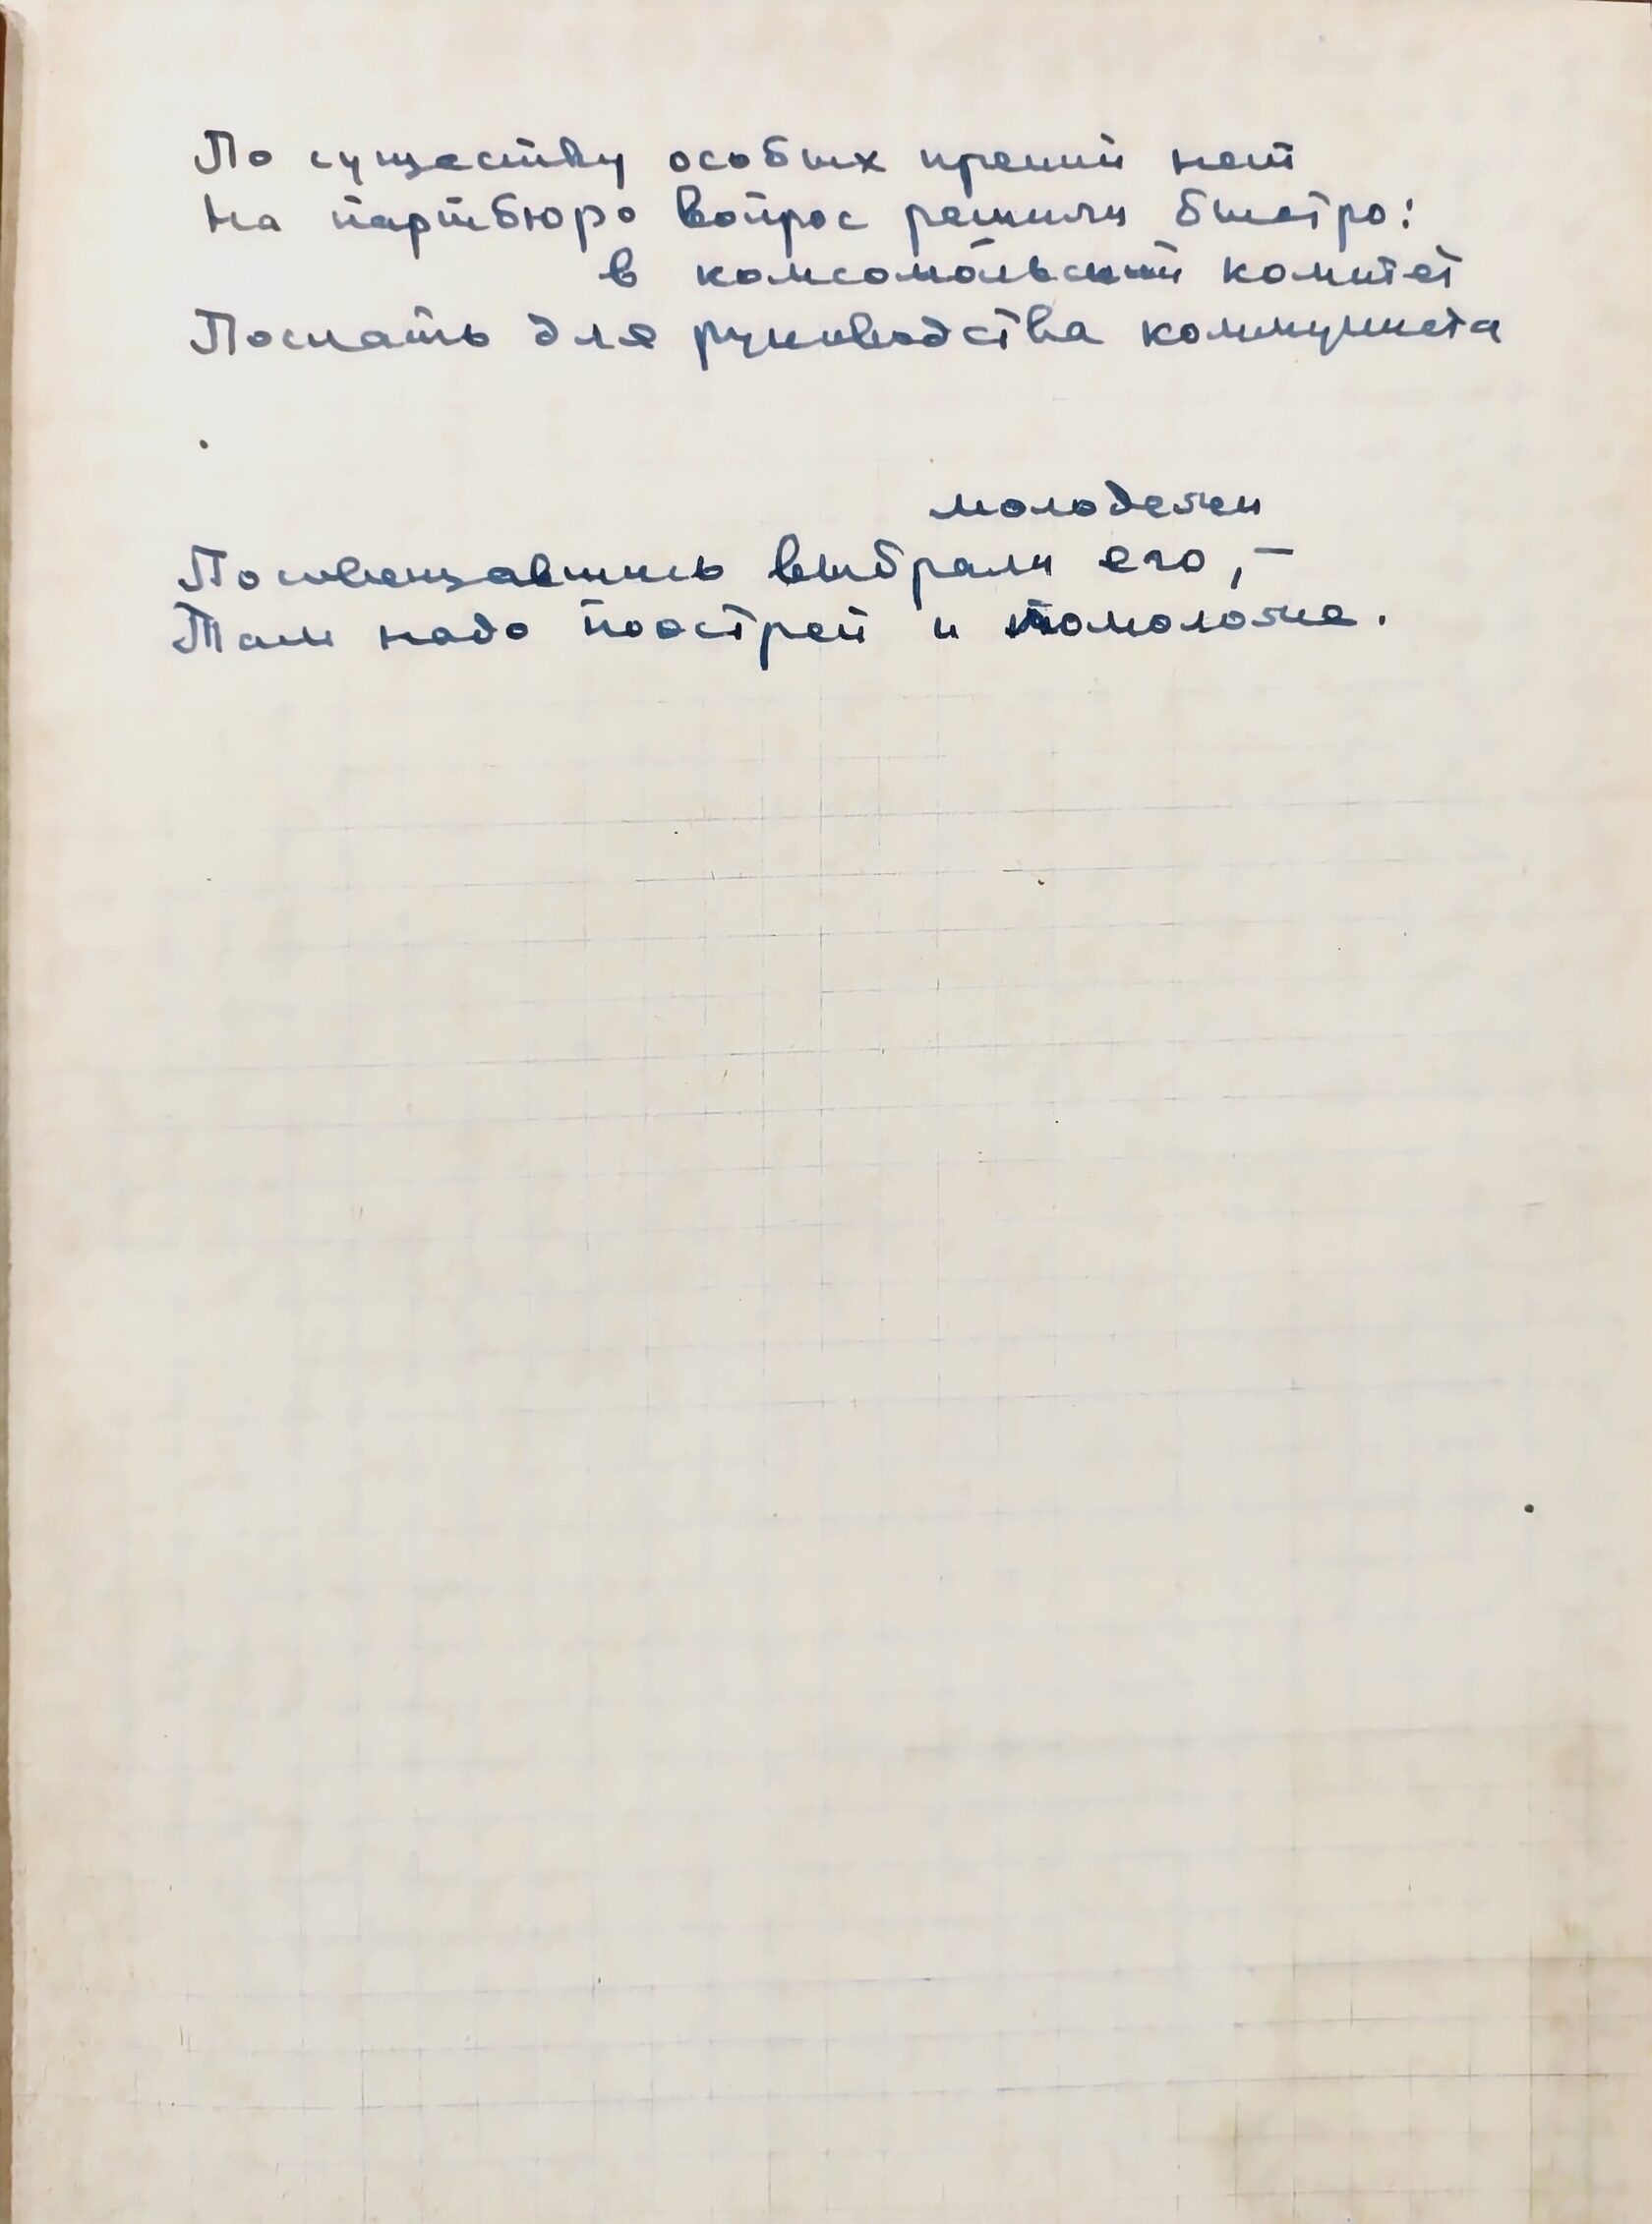 По существу особых прений нет
На партбюро вопрос решили быстро:
в комсомольский комитет
Послать для руководства коммуниста
молодежи
Посовещавшись выбрали его, –
Там надо поострей и помоложе.